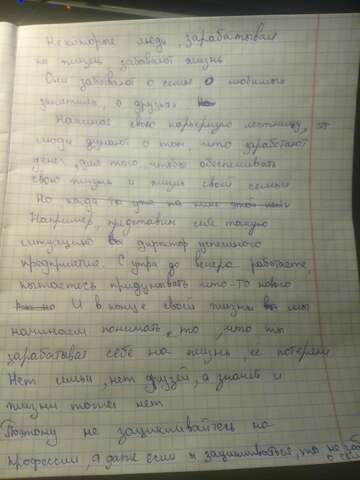 Некоторые люди, зарабатывая
на жизнь забывают жизнь
Они забывают о семье о любимых
занятиях, о друзьях
Начиная свою карьерную лестницу,
люди думают о том, что заработают
денег, для того, чтобы обеспечивать
свою жизнь и жизнь своей семьи
Но когда то
Например, представим себе такую
ситуацию вы директор успешного
предприятия. С утра до вечера работаете,
пытаетесь придумывать что-то нового
И в конце своей жизни мы
начинаем понимать, то, что ты
зарабатывая себе на жизнь, её потеряли
Нет семьи, нет друзей, а значит и
жизни тоже нет
Поэтому не зацикливайтесь на
профессии, а даже если и зациклились, то не